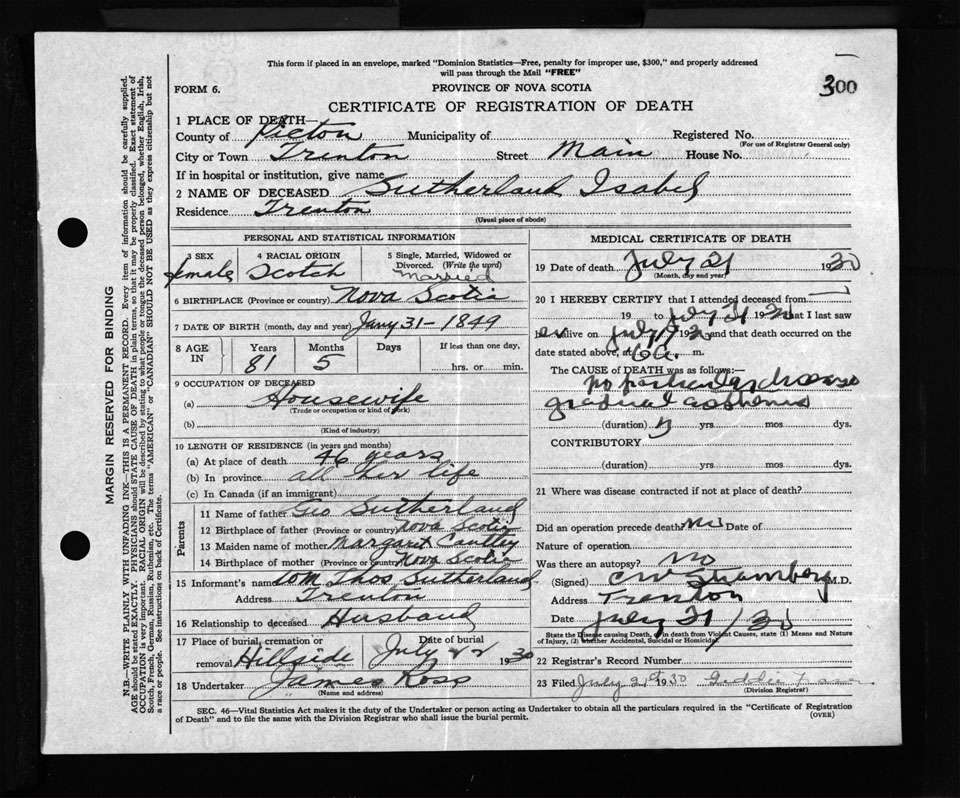 This form if placed in an envelope, marked "Dominion Statistics—Free, penalty for improper use, $300," and properly addressed
will pass through the Mail "FREE"
FORM 6.
PROVINCE OF NOVA SCOTIA
300
CERTIFICATE OF REGISTRATION OF DEATH
1 PLACE OF DEATH—
County of Pictou Municipality of Registered No.
(For use of Registrar General only)
City or Town Trenton Street Main House No.
If in hospital or institution, give name
2 NAME OF DECEASED Sutherland Isabel
Residence Trenton
(Usual place of abode)
PERSONAL AND STATISTICAL INFORMATION
3 SEX female
4 RACIAL ORIGIN Scotch
5 Single, Married, Widowed or Divorced. (Write the word) Married
6 BIRTHPLACE (Province or country) Nova Scotia
7 DATE OF BIRTH (month, day and year) Jany 31 - 1849
8 AGE IN Years 81 Months 5 Days If less than one day, hrs. or min.
9 OCCUPATION OF DECEASED
(a) Housewife
(Trade or occupation or kind of work)
(b)
(Kind of industry)
10 LENGTH OF RESIDENCE (in years and months)
(a) At place of death 46 years
(b) In province all her life
(c) In Canada (if an immigrant)
Parents
11 Name of father Geo Sutherland
12 Birthplace of father (Province or country) Nova Scotia
13 Maiden name of mother Margaret Cantley
14 Birthplace of mother (Province or country) Nova Scotia
15 Informant's name Wm Thos Sutherland
Address Trenton
16 Relationship to deceased Husband
17 Place of burial, cremation or removal Hillside Date of burial July 22 1930
18 Undertaker James Ross
(Name and address)
MEDICAL CERTIFICATE OF DEATH
19 Date of death July 21 1930
(Month, day and year)
20 I HEREBY CERTIFY that I attended deceased from
19 to July 21 1930 that I last saw
h er alive on July 19 30 and that death occurred on the
date stated above, at 6 a. m.
The CAUSE of DEATH was as follows:—
no particular disease
gradual asthenia
(duration) yrs mos dys.
CONTRIBUTORY
(duration) yrs mos dys.
21 Where was disease contracted if not at place of death?
Did an operation precede death? No Date of
Nature of operation
Was there an autopsy? No
(Signed) C W Stramberg M.D.
Address Trenton
Date July 21/30
State the Disease causing Death, or in death from Violent Causes, state (1) Means and Nature
of Injury, (2) whether Accidental, Suicidal or Homicidal.
22 Registrar's Record Number
23 Filed July 21st 1930
(Division Registrar)
SEC. 46—Vital Statistics Act makes it the duty of the Undertaker or person acting as Undertaker to obtain all the particulars required in the "Certificate of Registration
of Death" and to file the same with the Division Registrar who shall issue the burial permit.
(OVER)
MARGIN RESERVED FOR BINDING
N.B.—WRITE PLAINLY WITH UNFADING INK—THIS IS A PERMANENT RECORD. Every item of information should be carefully supplied.
AGE should be stated EXACTLY. PHYSICIANS should STATE CAUSE OF DEATH in plain terms, so that it may be properly classified. Exact statement of
OCCUPATION is very important. RACIAL ORIGIN will be described by stating to what people or tongue the deceased person belonged, whether English, Irish,
Scotch, French, German, Russian, Ruthenian, etc. The terms "AMERICAN" or "CANADIAN" SHOULD NOT BE USED as they express citizenship but not
a race or people. See instructions on back of Certificate.